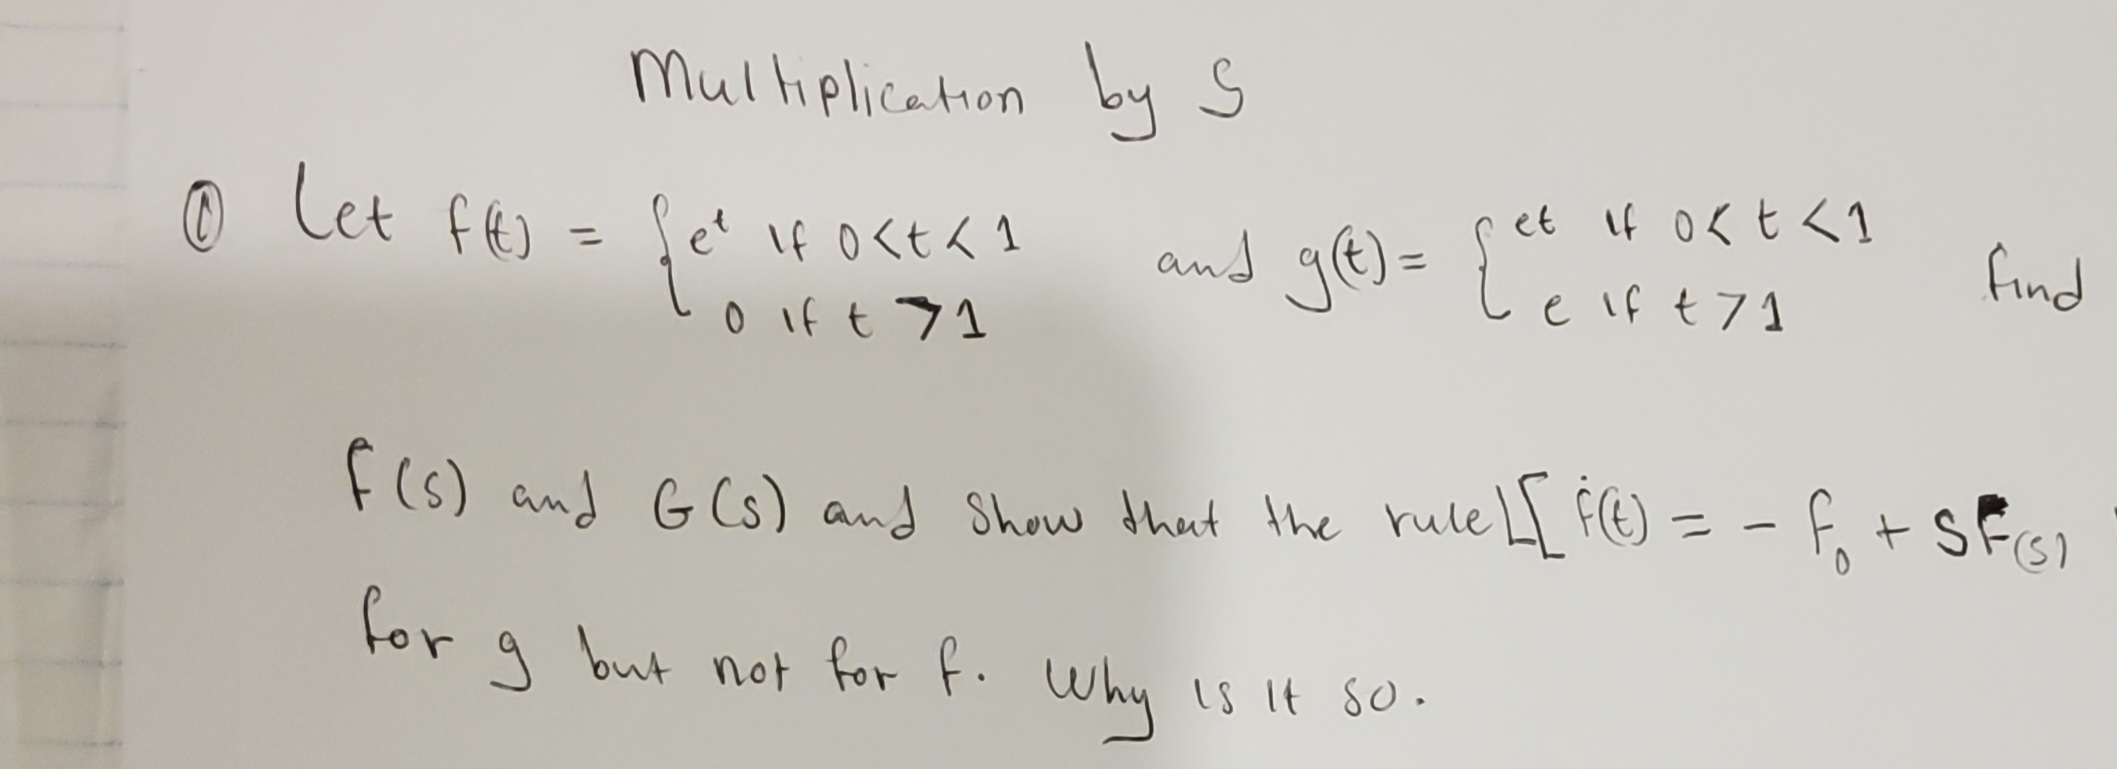 Multiplication by S
① Let f(t) = { e^t if 0<t<1 and g(t) = { et if 0<t<1 find
0 if t >1 e if t >1
F(s) and G(s) and show that the rule L[ ḟ(t) = - f₀ + SF(s)
for g but not for f. Why is it so.